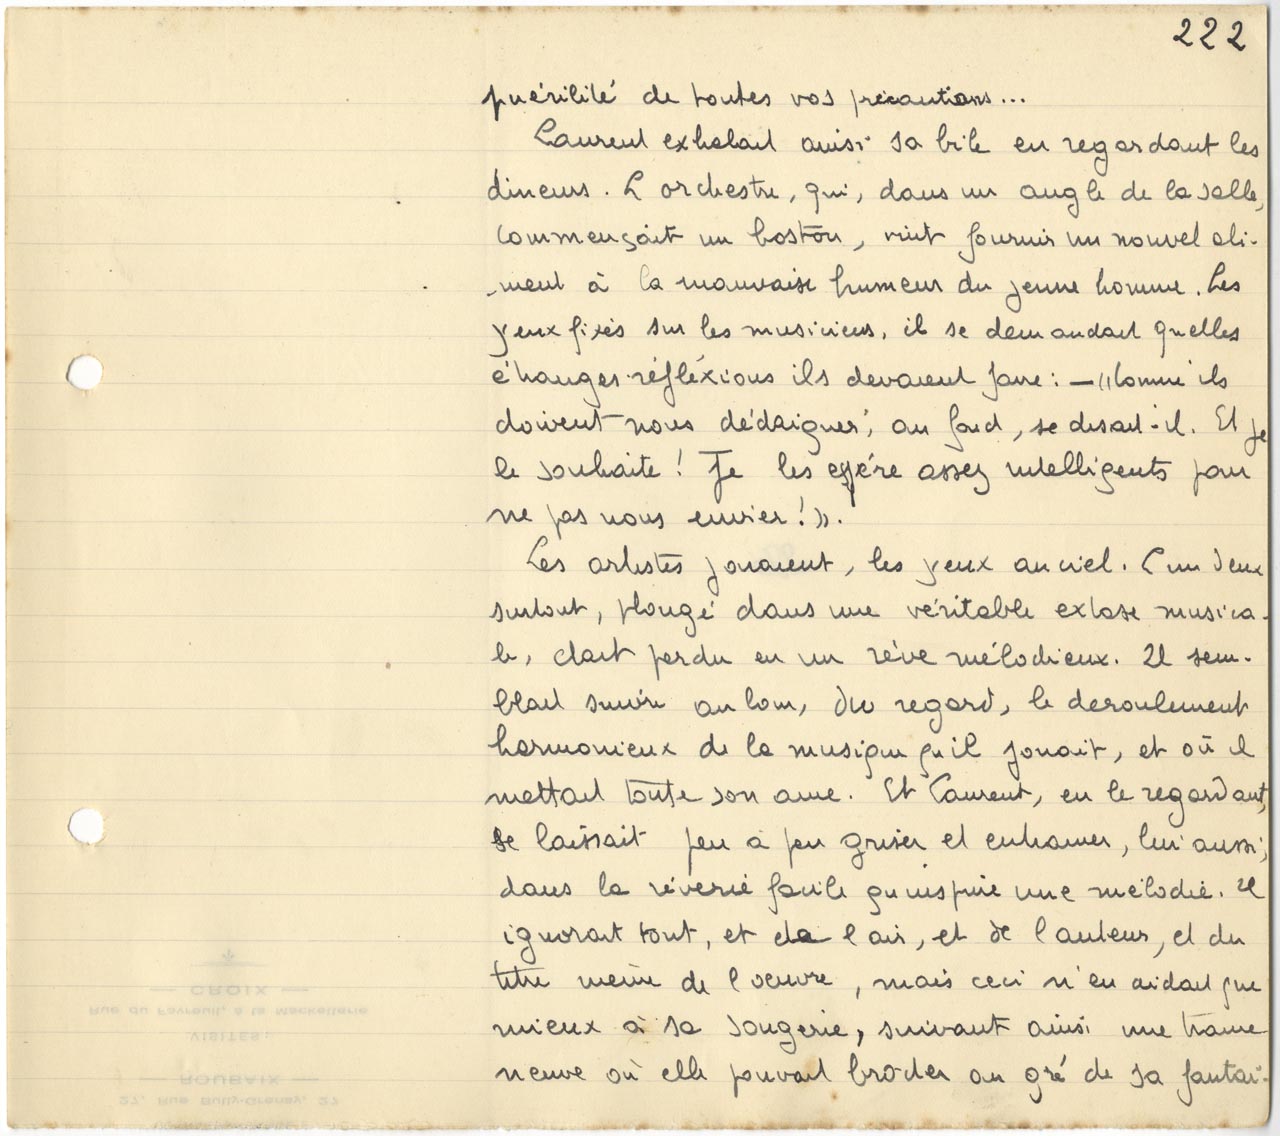 222
puérilité de toutes vos précautions...
Laurent exhalait ainsi sa bile en regardant les
dineurs. L'orchestre, qui, dans un angle de la salle,
commençait un boston, vint fournir un nouvel ali-
-ment à la mauvaise humeur du jeune homme. Les
yeux fixés sur les musiciens, il se demandait quelles
étranges réfléxions ils devaient faire: — "Comme ils
doivent nous dédaigner, au fond, se disait-il. Et je
le souhaite! Je les espére assez intelligents pour
ne pas nous envier!".
Les artistes jouaient, les yeux au ciel. L'un d'eux
surtout, plongé dans une véritable extase musica-
le, était perdu en un rêve mélodieux. Il sem-
blait suivre au loin, du regard, le deroulement
harmonieux de la musique qu'il jouait, et où il
mettait toute son ame. Et Laurent, en le regardant,
se laissait peu à peu griser et entrainer, lui aussi,
dans la rêverie facile qu'inspire une mélodie. Il
ignorait tout, et de l'air, et de l'auteur, et du
titre même de l'oeuvre, mais ceci n'en aidait que
mieux à sa songerie, suivant ainsi une trame
neuve où elle pouvait broder au gré de sa fantai-
CROIX
Rue du Fayreuil, à la Mackellerie
VISITES:
ROUBAIX
27, Rue Bully-Grenay, 27